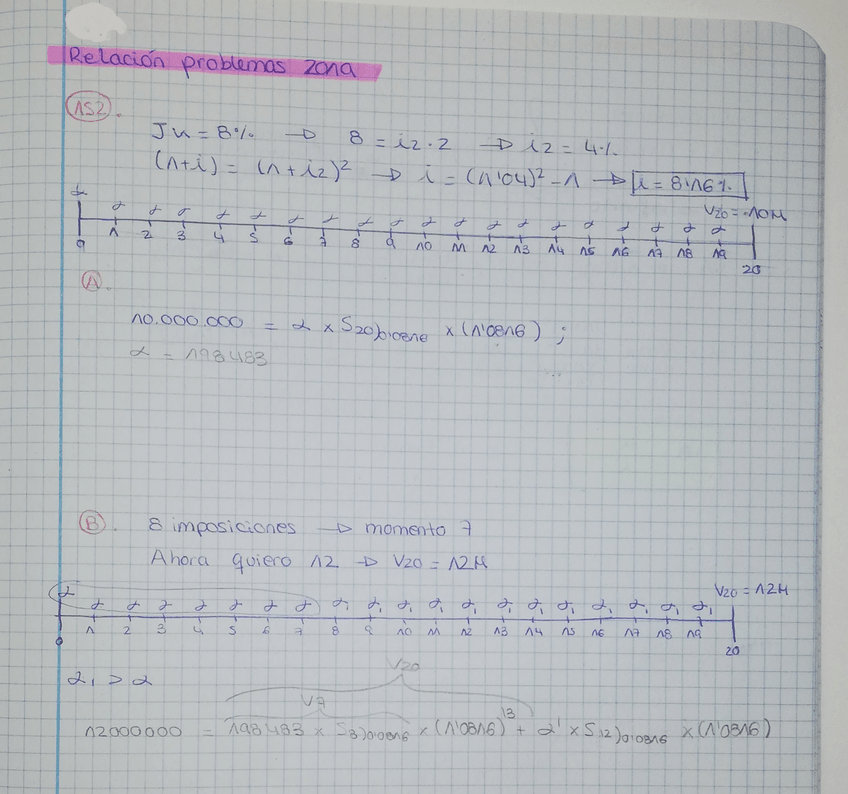 Relación problemas zona
152.
Ju = 8% → 8 = i2·2 → i2 = 4%
(1+i) = (1+i2)² → i = (1'04)² - 1 → i = 8'16%
α α α α α α α α α α α α α α α α α α α α V20 = 10M
0 1 2 3 4 5 6 7 8 9 10 11 12 13 14 15 16 17 18 19 20
A.
10.000.000 = α × S20)0'0816 × (1'0816) ;
α = 198483
B. 8 imposiciones → momento 7
Ahora quiero 12 → V20 = 12M
α α α α α α α α α₁ α₁ α₁ α₁ α₁ α₁ α₁ α₁ α₁ α₁ α₁ α₁ V20 = 12M
0 1 2 3 4 5 6 7 8 9 10 11 12 13 14 15 16 17 18 19 20
α₁ > α
V20
V7
12000000 = 198483 × S8)0'0816 × (1'0816)¹³ + α' × S12)0'0816 × (1'0816)